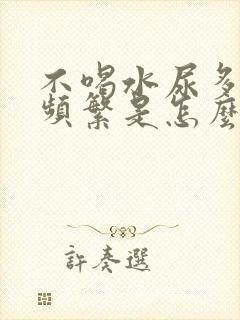 不喝水尿多
頻繁是怎麼
許奏選